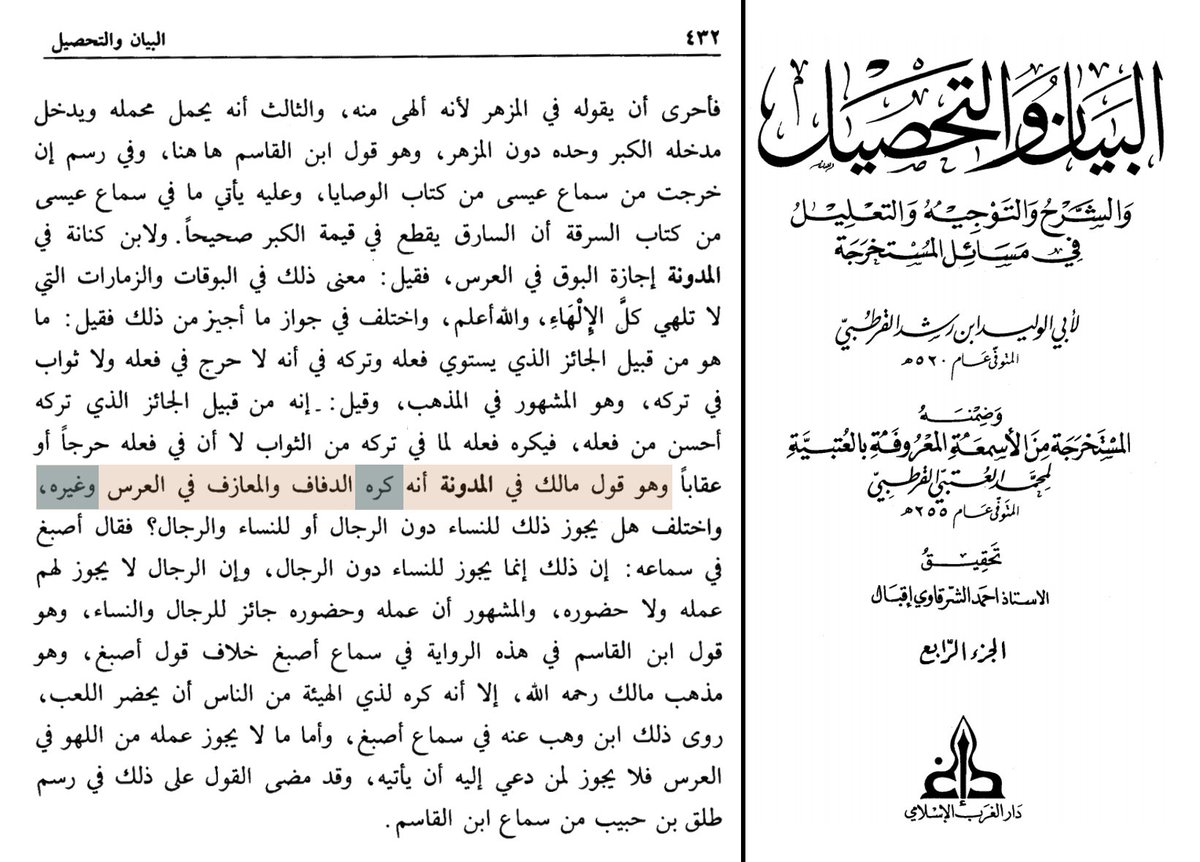 ٤٣٢
البيان والتحصيل
فأحرى أن يقوله في المزهر لأنه ألهى منه، والثالث أنه يحمل محمله ويدخل
مدخله الكبر وحده دون المزهر، وهو قول ابن القاسم ها هنا، وفي رسم إن
خرجت من سماع عيسى من كتاب الوصايا، وعليه يأتي ما في سماع عيسى
من كتاب السرقة أن السارق يقطع في قيمة الكبر صحيحاً. ولابن كنانة في
المدونة إجازة البوق في العرس، فقيل: معنى ذلك في البوقات والزمارات التي
لا تلهي كلَّ الإِلْهَاءِ، والله أعلم، واختلف في جواز ما أجيز من ذلك فقيل: ما
هو من قبيل الجائز الذي يستوي فعله وتركه في أنه لا حرج في فعله ولا ثواب
في تركه، وهو المشهور في المذهب، وقيل:ـ إنه من قبيل الجائز الذي تركه
أحسن من فعله، فيكره فعله لما في تركه من الثواب لا أن في فعله حرجاً أو
عقاباً وهو قول مالك في المدونة أنه كره الدفاف والمعازف في العرس وغيره،
واختلف هل يجوز ذلك للنساء دون الرجال أو للنساء والرجال؟ فقال أصبغ
في سماعه: إن ذلك إنما يجوز للنساء دون الرجال، وإن الرجال لا يجوز لهم
عمله ولا حضوره، والمشهور أن عمله وحضوره جائز للرجال والنساء، وهو
قول ابن القاسم في هذه الرواية في سماع أصبغ خلاف قول أصبغ، وهو
مذهب مالك رحمه الله، إلا أنه كره لذي الهيئة من الناس أن يحضر اللعب،
روى ذلك ابن وهب عنه في سماع أصبغ، وأما ما لا يجوز عمله من اللهو في
العرس فلا يجوز لمن دعي إليه أن يأتيه، وقد مضى القول على ذلك في رسم
طلق بن حبيب من سماع ابن القاسم.
البَيَان وَالتَّحصيل
وَالشَّرحُ وَالتَّوجِيهُ وَالتَّعلِيلُ
في مَسَائِل المُسْتَخرَجَة
لأبي الوليد ابن رشد القرطبيّ
المتوفّى عَام ٥٢٠ هـ
وَضِمنَهُ
المُسْتَخرَجَة مِنَ الأسمِعَة المَعرُوفَة بِالعُتبِيَّة
لمحمّد العُتبيّ القرطبيّ
المتوفّى عَام ٢٥٥ هـ
تحقيق
الاستاذ احمد الشرقاوي إقبال
الجزء الرَّابع
دَار الغَربِ الإسلامي